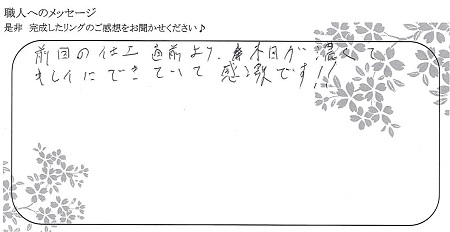 職人へのメッセージ
是非 完成したリングのご感想をお聞かせください♪
前回の仕上 直前より、木目が濃くて
キレイにできていて 感激です!!